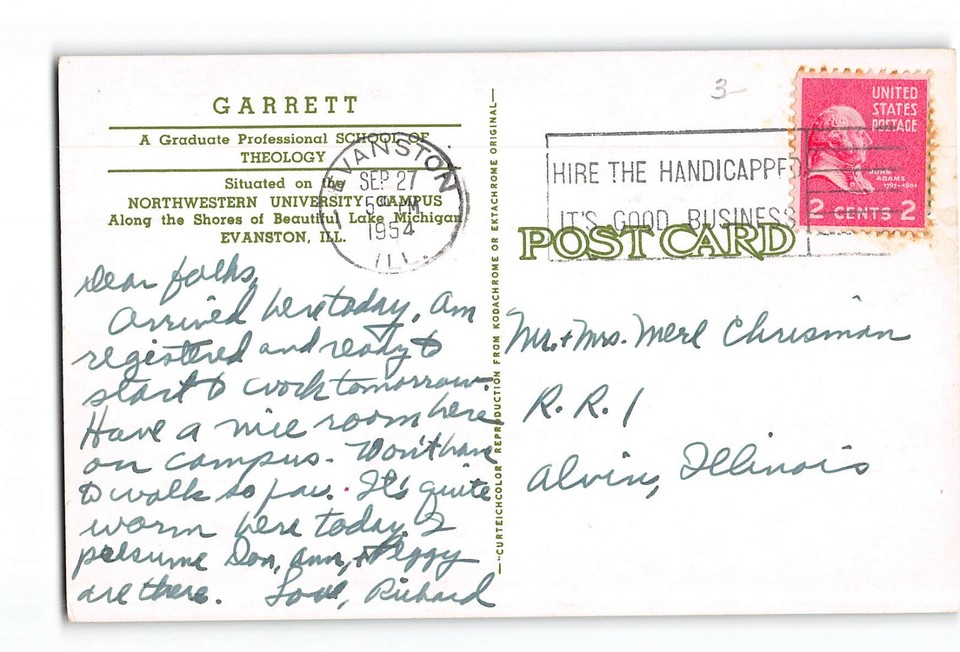 GARRETT
A Graduate Professional SCHOOL OF
THEOLOGY
Situated on the
NORTHWESTERN UNIVERSITY CAMPUS
Along the Shores of Beautiful Lake Michigan
EVANSTON, ILL.
EVANSTON
SEP 27
5 PM
1954
ILL.
Dear folks,
Arrived here today, am
registered and ready to
start to work tomorrow.
Have a nice room here
on campus. Won't have
to walk so far. It's quite
warm here today. I
presume Don, Ann, + Peggy
are there. Love, Richard
—"CURTEICHCOLOR" REPRODUCTION FROM KODACHROME OR EKTACHROME ORIGINAL—
3-
HIRE THE HANDICAPPED
IT'S GOOD BUSINESS
UNITED
STATES
POSTAGE
JOHN
ADAMS
1797-1801
2 CENTS 2
POST CARD
Mr. + Mrs. Merl Chrisman
R. R. 1
Alvin, Illinois